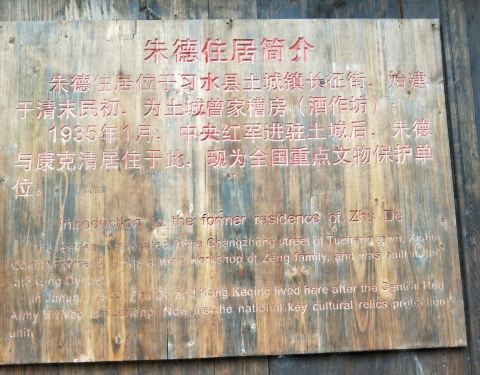 朱德住居简介
朱德住居位于习水县土城镇长征街，始建
于清末民初，为土城曾家糟房（酒作坊）。
1935年1月，中央红军进驻土城后，朱德
与康克清居住于此，现为全国重点文物保护单
位。
Introduction to the former residence of Zhu De
residence located the Changzheng street of Tucheng town, Xishui
County. a wine workshop of Zeng family, and was built
Qing
In January Zhu De and Kang Keqing lived here after the Central Red
Army arrived Tucheng. Now the national key cultural relics protection
unit.